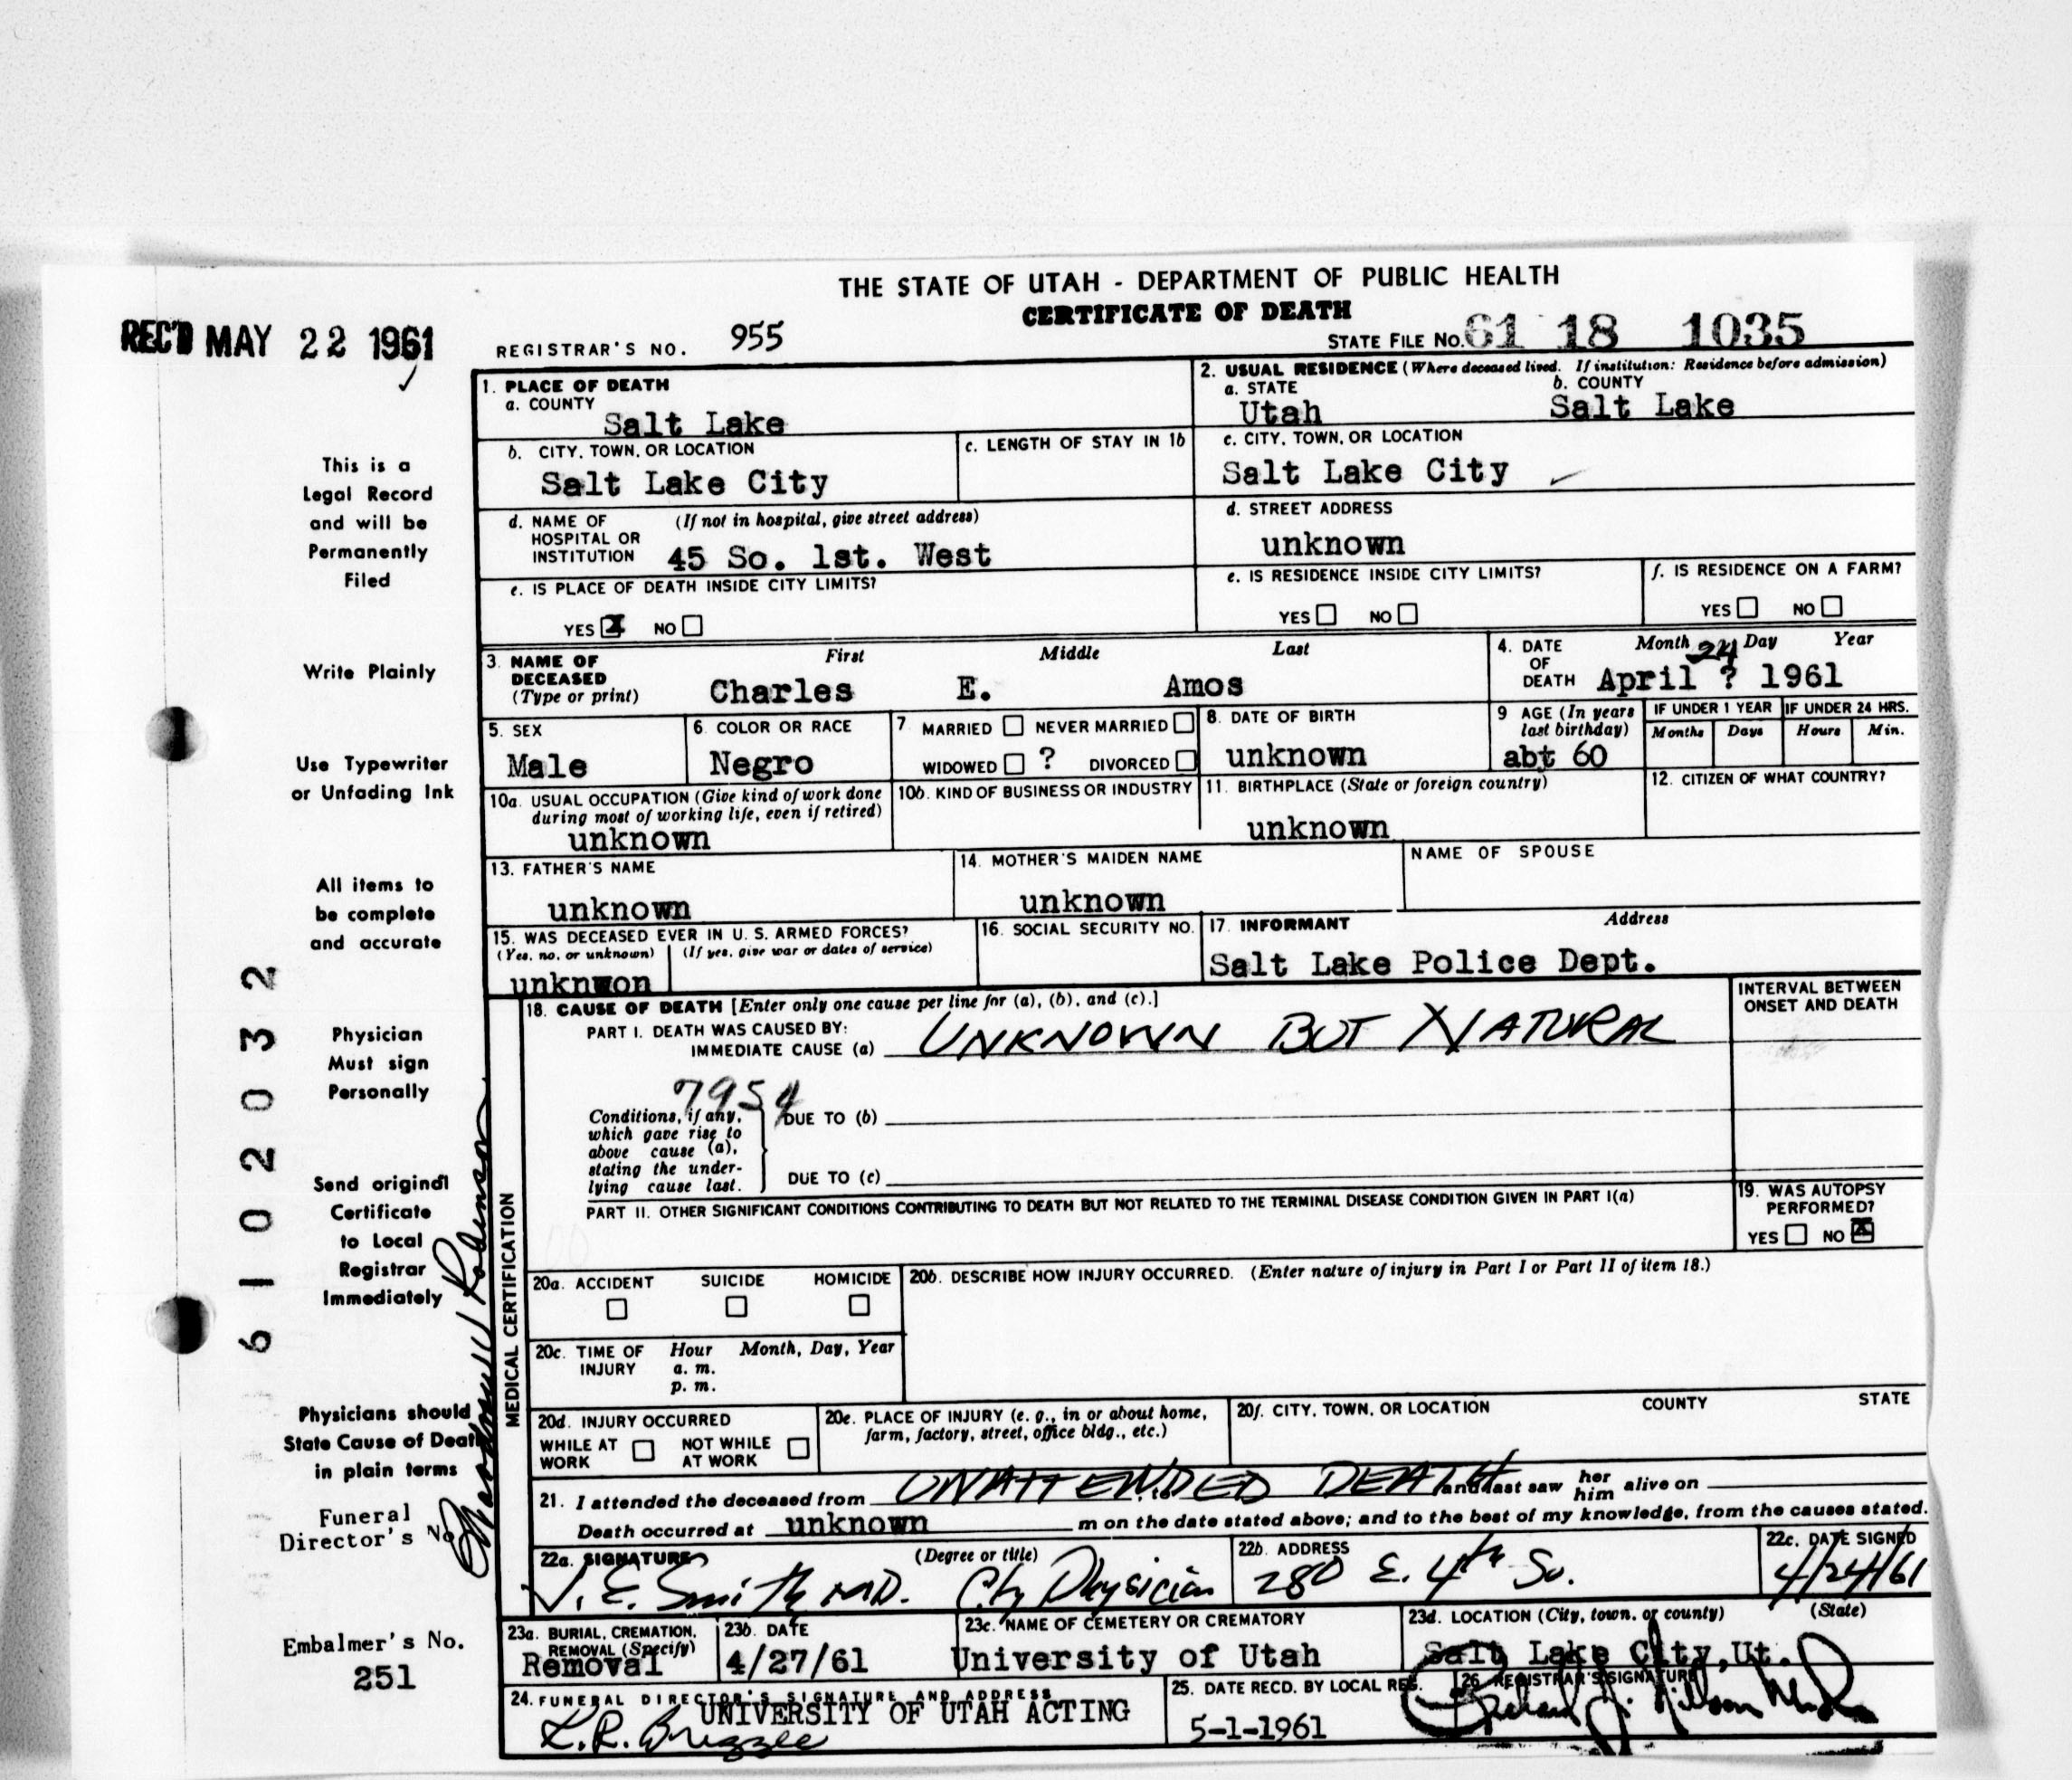 THE STATE OF UTAH - DEPARTMENT OF PUBLIC HEALTH
CERTIFICATE OF DEATH
REC'D MAY 22 1961
REGISTRAR'S NO. 955
STATE FILE NO. 61 18 1035
1. PLACE OF DEATH
a. COUNTY
Salt Lake
2. USUAL RESIDENCE (Where deceased lived. If institution: Residence before admission)
a. STATE b. COUNTY
Utah Salt Lake
b. CITY, TOWN, OR LOCATION
Salt Lake City
c. LENGTH OF STAY IN 1b
c. CITY, TOWN, OR LOCATION
Salt Lake City
d. NAME OF (If not in hospital, give street address)
HOSPITAL OR
INSTITUTION 45 So. 1st. West
d. STREET ADDRESS
unknown
e. IS PLACE OF DEATH INSIDE CITY LIMITS?
YES X NO
e. IS RESIDENCE INSIDE CITY LIMITS?
YES NO
f. IS RESIDENCE ON A FARM?
YES NO
3. NAME OF First Middle Last
DECEASED
(Type or print) Charles E. Amos
4. DATE Month 24 Day Year
OF
DEATH April ? 1961
5. SEX
Male
6. COLOR OR RACE
Negro
7 MARRIED NEVER MARRIED
WIDOWED ? DIVORCED
8. DATE OF BIRTH
unknown
9 AGE (In years
last birthday)
abt 60
IF UNDER 1 YEAR IF UNDER 24 HRS.
Months Days Hours Min.
10a. USUAL OCCUPATION (Give kind of work done
during most of working life, even if retired)
unknown
10b. KIND OF BUSINESS OR INDUSTRY
11. BIRTHPLACE (State or foreign country)
unknown
12. CITIZEN OF WHAT COUNTRY?
13. FATHER'S NAME
unknown
14. MOTHER'S MAIDEN NAME
unknown
NAME OF SPOUSE
15. WAS DECEASED EVER IN U. S. ARMED FORCES?
(Yes, no, or unknown) (If yes, give war or dates of service)
unknwon
16. SOCIAL SECURITY NO.
17. INFORMANT Address
Salt Lake Police Dept.
18. CAUSE OF DEATH [Enter only one cause per line for (a), (b), and (c).]
PART I. DEATH WAS CAUSED BY:
IMMEDIATE CAUSE (a) UNKNOWN BUT NATURAL
INTERVAL BETWEEN
ONSET AND DEATH
7954
Conditions, if any,
which gave rise to
above cause (a),
stating the under-
lying cause last.
DUE TO (b)
DUE TO (c)
PART II. OTHER SIGNIFICANT CONDITIONS CONTRIBUTING TO DEATH BUT NOT RELATED TO THE TERMINAL DISEASE CONDITION GIVEN IN PART I(a)
19. WAS AUTOPSY
PERFORMED?
YES NO X
20a. ACCIDENT SUICIDE HOMICIDE
20b. DESCRIBE HOW INJURY OCCURRED. (Enter nature of injury in Part I or Part II of item 18.)
20c. TIME OF Hour Month, Day, Year
INJURY a. m.
p. m.
20d. INJURY OCCURRED
WHILE AT NOT WHILE
WORK AT WORK
20e. PLACE OF INJURY (e. g., in or about home,
farm, factory, street, office bldg., etc.)
20f. CITY, TOWN, OR LOCATION COUNTY STATE
21. I attended the deceased from UNATTENDED DEATH to and last saw her
him alive on
Death occurred at unknown m on the date stated above; and to the best of my knowledge, from the causes stated.
22a. SIGNATURE (Degree or title)
V. E. Smith MD. Cty Physician
22b. ADDRESS
280 E. 4th So.
22c. DATE SIGNED
4/24/61
23a. BURIAL, CREMATION,
REMOVAL (Specify)
Removal
23b. DATE
4/27/61
23c. NAME OF CEMETERY OR CREMATORY
University of Utah
23d. LOCATION (City, town, or county) (State)
Salt Lake City, Ut.
24. FUNERAL DIRECTOR'S SIGNATURE AND ADDRESS
UNIVERSITY OF UTAH ACTING
25. DATE RECD. BY LOCAL REG.
5-1-1961
26. REGISTRAR'S SIGNATURE
MEDICAL CERTIFICATION
This is a
Legal Record
and will be
Permanently
Filed
Write Plainly
Use Typewriter
or Unfading Ink
All items to
be complete
and accurate
Physician
Must sign
Personally
Send original
Certificate
to Local
Registrar
Immediately
Physicians should
State Cause of Death
in plain terms
Funeral
Director's No.
Embalmer's No.
251
61 02032